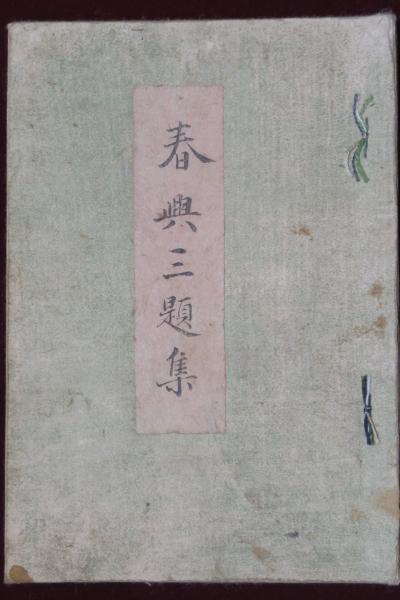 春興三題集